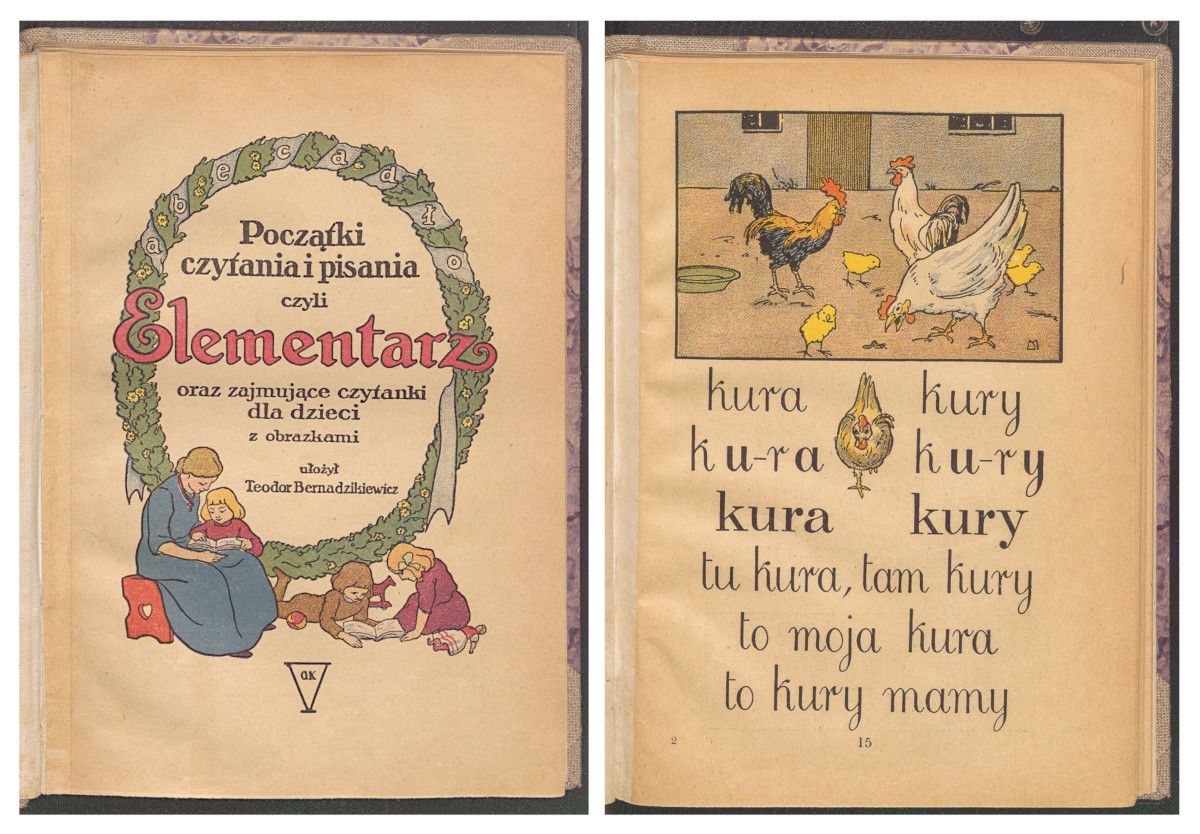 a b c d ł o
Początki
czytania i pisania
czyli
Elementarz
oraz zajmujące czytanki
dla dzieci
z obrazkami
ułożył
Teodor Bernadzikiewicz
G.K
kura kury
ku-ra ku-ry
kura kury
tu kura, tam kury
to moja kura
to kury mamy
2 15